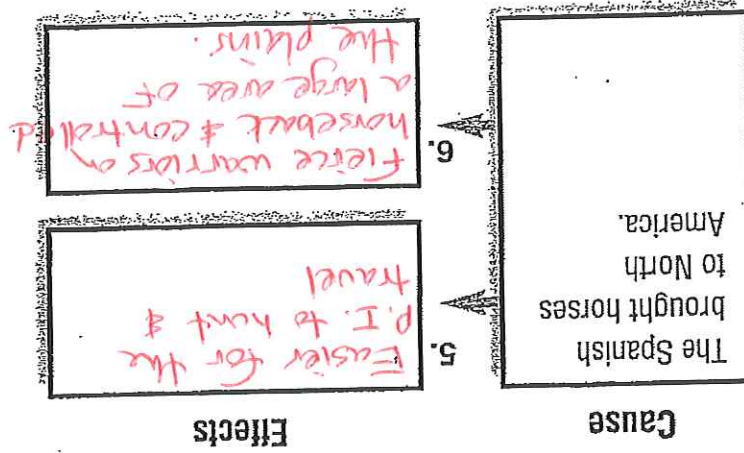 Cause
The Spanish
brought horses
to North
America.
Effects
5.
Easier for the
P.I. to hunt &
travel
6.
Fierce warriors on
horseback & controlled
a large area of
the plains.